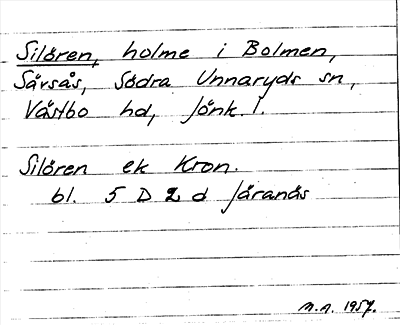 Silören, holme i Bolmen,
Särsås, Södra Unnaryds sn,
Västbo hd, Jönk. l.
Silören ek Kron.
bl. 5 D 2 d Järanäs
M.A. 1957.